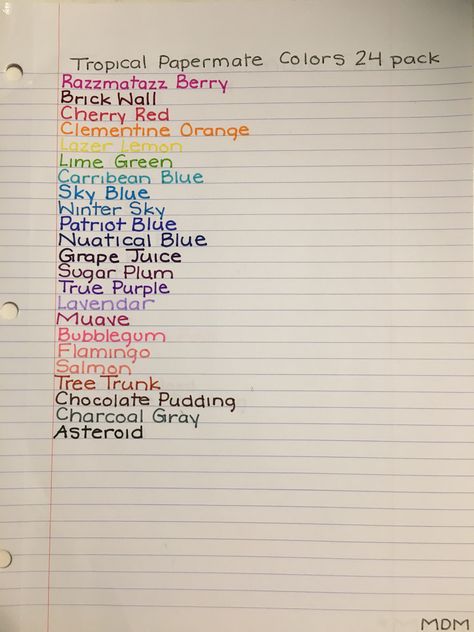 Tropical Papermate Colors 24 pack
Razzmatazz Berry
Brick Wall
Cherry Red
Clementine Orange
Lazer Lemon
Lime Green
Carribean Blue
Sky Blue
Winter Sky
Patriot Blue
Nuatical Blue
Grape Juice
Sugar Plum
True Purple
Lavendar
Muave
Bubblegum
Flamingo
Salmon
Tree Trunk
Chocolate Pudding
Charcoal Gray
Asteroid
MDM